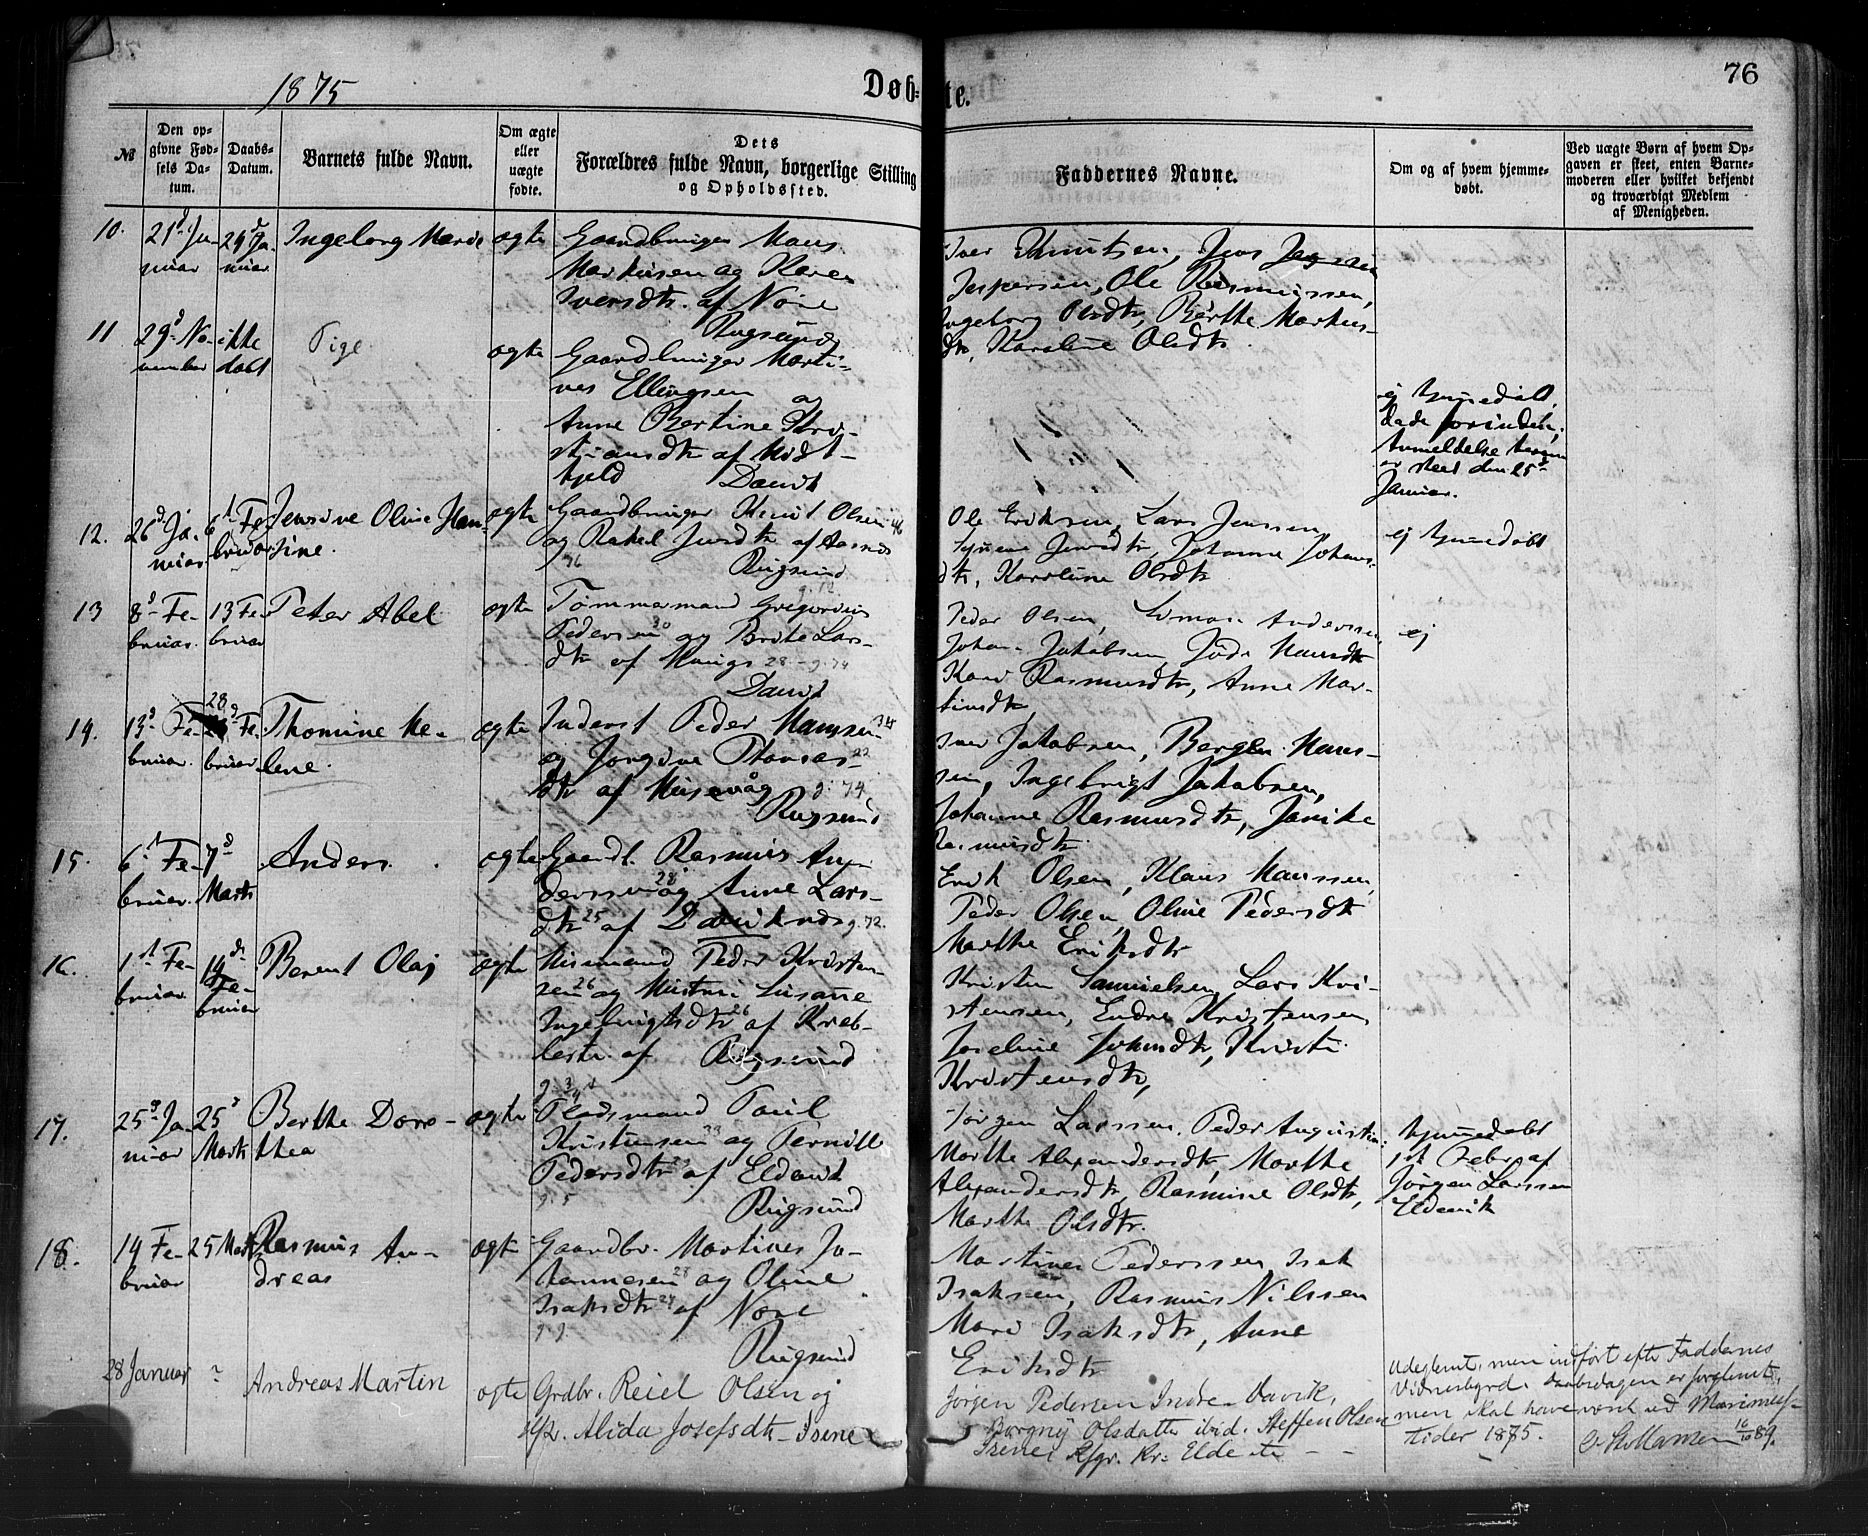 1875
Døb-
te.
76
№
Den op-
givne Fød-
sels Da-
tum.
Daabs-
Datum.
Barnets fulde Navn.
Om ægte
eller
uægte
fødte.
Dets
Forældres fulde Navn, borgerlige Stilling
og Opholdssted.
Faddernes Navne.
Om og af hvem hjemme-
døbt.
Ved uægte Børn af hvem Op-
gaven er skeet, enten Barne-
moderen eller hvilket bekjendt
og troværdigt Medlem
af Menigheden.
10.
21d Ja-
nuar
24d Ja-
nuar
Ingeborg Marie
ægte
Gaardbruger Hans
Markusen og Karen
Iversdtr. af Nore
Rugsund
Iver Knutsen, Jens
Jespersen, Ole Rasmussen,
Ingeborg Olsdtr, Berthe Markus-
dtr, Karoline Olsdtr
11
29d No-
vember
ikke
døbt
Pige
ægte
Gaardbruger Marti-
nus Ellingsen og
Anne Bertine Kri-
stiansdtr af Midt-
hjeld Davik
ej hjemmedøbt,
døde forinden,
Anmeldelse
er skeet den 25d
Januar.
12.
26d Ja-
nuar
6t Fe-
bruar
Jensine Oline Han-
sine.
ægte
Gaardbruger Knut Olsen 46
og Rakel Jensdtr af Aasnes
36 Rugsund
Ole Eriksen, Lars Jenssen,
Jensdtr, Johanne Johans-
dtr, Karoline Olsdtr
ej hjemmedøbt
13
8d Fe-
bruar.
13 Fe-
bruar
Peter Abel
ægte
g. 72
Tømmermand Gregorius
Pedersen 30 og Brite Lars-
dtr af Haugs 28 - g. 74
Davik
Peder Olsen, Simon Anderssen
Johan Jakobsen, Hansdtr
Kari Rasmusdtr, Anne Mar-
tinsdtr
ej
14.
13d Fe-
bruar.
28d
Fe-
bruar
Thomine He-
lene.
ægte
Inderst Peder Hanssen 34
og Jorgine Thomas- 22
dtr af Husevåg g. 74
Rugsund
Iver Jakobsen, Bergen Hans-
sen, Ingebrigt Jakobsen,
Johanne Rasmusdtr, Janike
Rasmusdtr.
15.
6t Fe-
bruar.
7d
Marts
Anders.
ægte
Gaardb. Rasmus An-
derssen 28 og Anne Lars-
dtr 25 af Davik g. 72.
Erik Olsen, Klaus Hanssen,
Peder Olsen, Oline Pedersdtr
Marthe Eriksdtr
16.
1st Fe-
bruar
14de
Fe-
bruar
Berent Olai
ægte
Husmand Peder Kristen-
sen 26 og Hustru Susanne
Ingebrigtsdtr 26 af
Rugsund
Kristen Samuelsen, Lars Kri-
stensen, Endre Kristensen
Joseline Johnsdtr, Kristi
Kristensdtr,
17.
25d Ja-
nuar
25d
Marts
Berthe Doro-
thea
ægte
g. 3/4
Pladsmand Paul
Kristensen 23 og Pernille
Pedersdtr af Eldevik
g. 5 Rugsund
Jørgen Larssen, Peder Augustin-
Marthe Alexandersdtr, Marthe
Alexandersdtr, Rasmine Olsdtr,
Marthe Olsdtr.
hjemmedøbt
1st Febr. af
Jørgen Larssen
Eldevik
18.
14 Fe-
bruar
25 Marts
Rasmus An-
dreas
ægte
Gaardbr. Martinus Jo-
hannesen 28 og Oline
Isaksdtr 24 af Nore
g. g. Rugsund
Martinus Pederssen, Isak
Isaksen, Rasmus Nilssen
Mari Isaksdtr, Anne
Eriksdtr
28 Januar
?
Andreas Martin
ægte
Grdbr. Reiel Olsen og
Hst. Alida Josefsdtr Isene
Jørgen Pedersen Indre Davik,
Borgny Olsdatter ibid. Steffen Olsen
Isene, Kfgr. Kr. Elde etc
Udeglemt, men indført efter Faddernes
Vidnesbyrd. Daabsdagen er forglemt,
men skal have været ved Marimess-
tider 1875. 16/10 89.